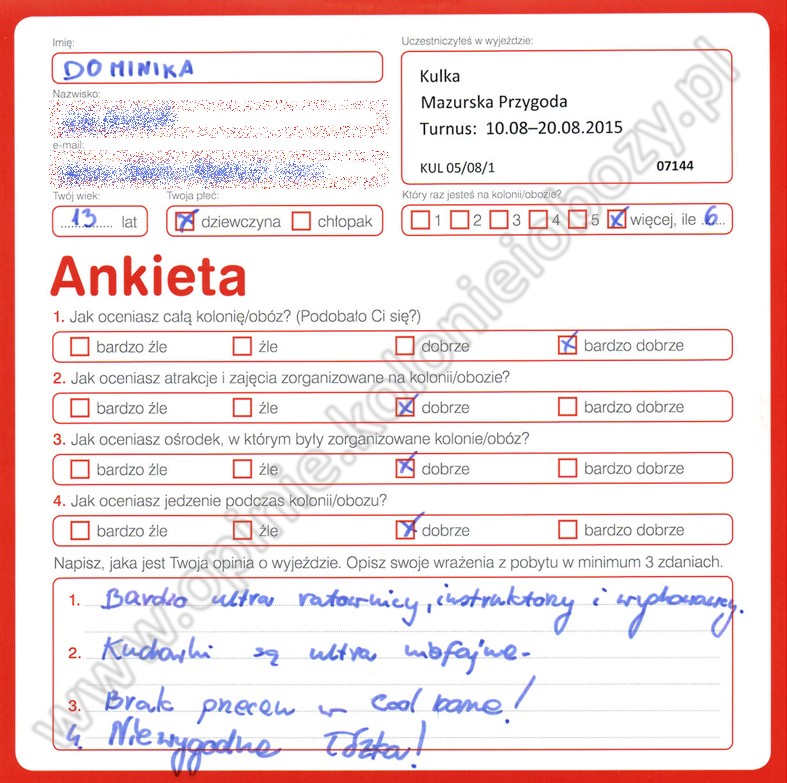 Imię:
DOMINIKA
Nazwisko:
e-mail:
Twój wiek:
13 lat
Twoja płeć:
dziewczyna chłopak
Uczestniczyłeś w wyjeździe:
Kulka
Mazurska Przygoda
Turnus: 10.08–20.08.2015
KUL 05/08/1 07144
Który raz jesteś na kolonii/obozie?
1 2 3 4 5 więcej, ile 6
Ankieta
1. Jak oceniasz całą kolonię/obóz? (Podobało Ci się?)
bardzo źle źle dobrze bardzo dobrze
2. Jak oceniasz atrakcje i zajęcia zorganizowane na kolonii/obozie?
bardzo źle źle dobrze bardzo dobrze
3. Jak oceniasz ośrodek, w którym były zorganizowane kolonie/obóz?
bardzo źle źle dobrze bardzo dobrze
4. Jak oceniasz jedzenie podczas kolonii/obozu?
bardzo źle źle dobrze bardzo dobrze
Napisz, jaka jest Twoja opinia o wyjeździe. Opisz swoje wrażenia z pobytu w minimum 3 zdaniach.
1. Bardzo ultra ratownicy, instruktorzy i wychowawcy.
2. Kucharki są ultra niefajne.
3. Brak przecen w cool barze!
4. Niewygodne łóżka!
www.opinie.kolonieiobozy.pl